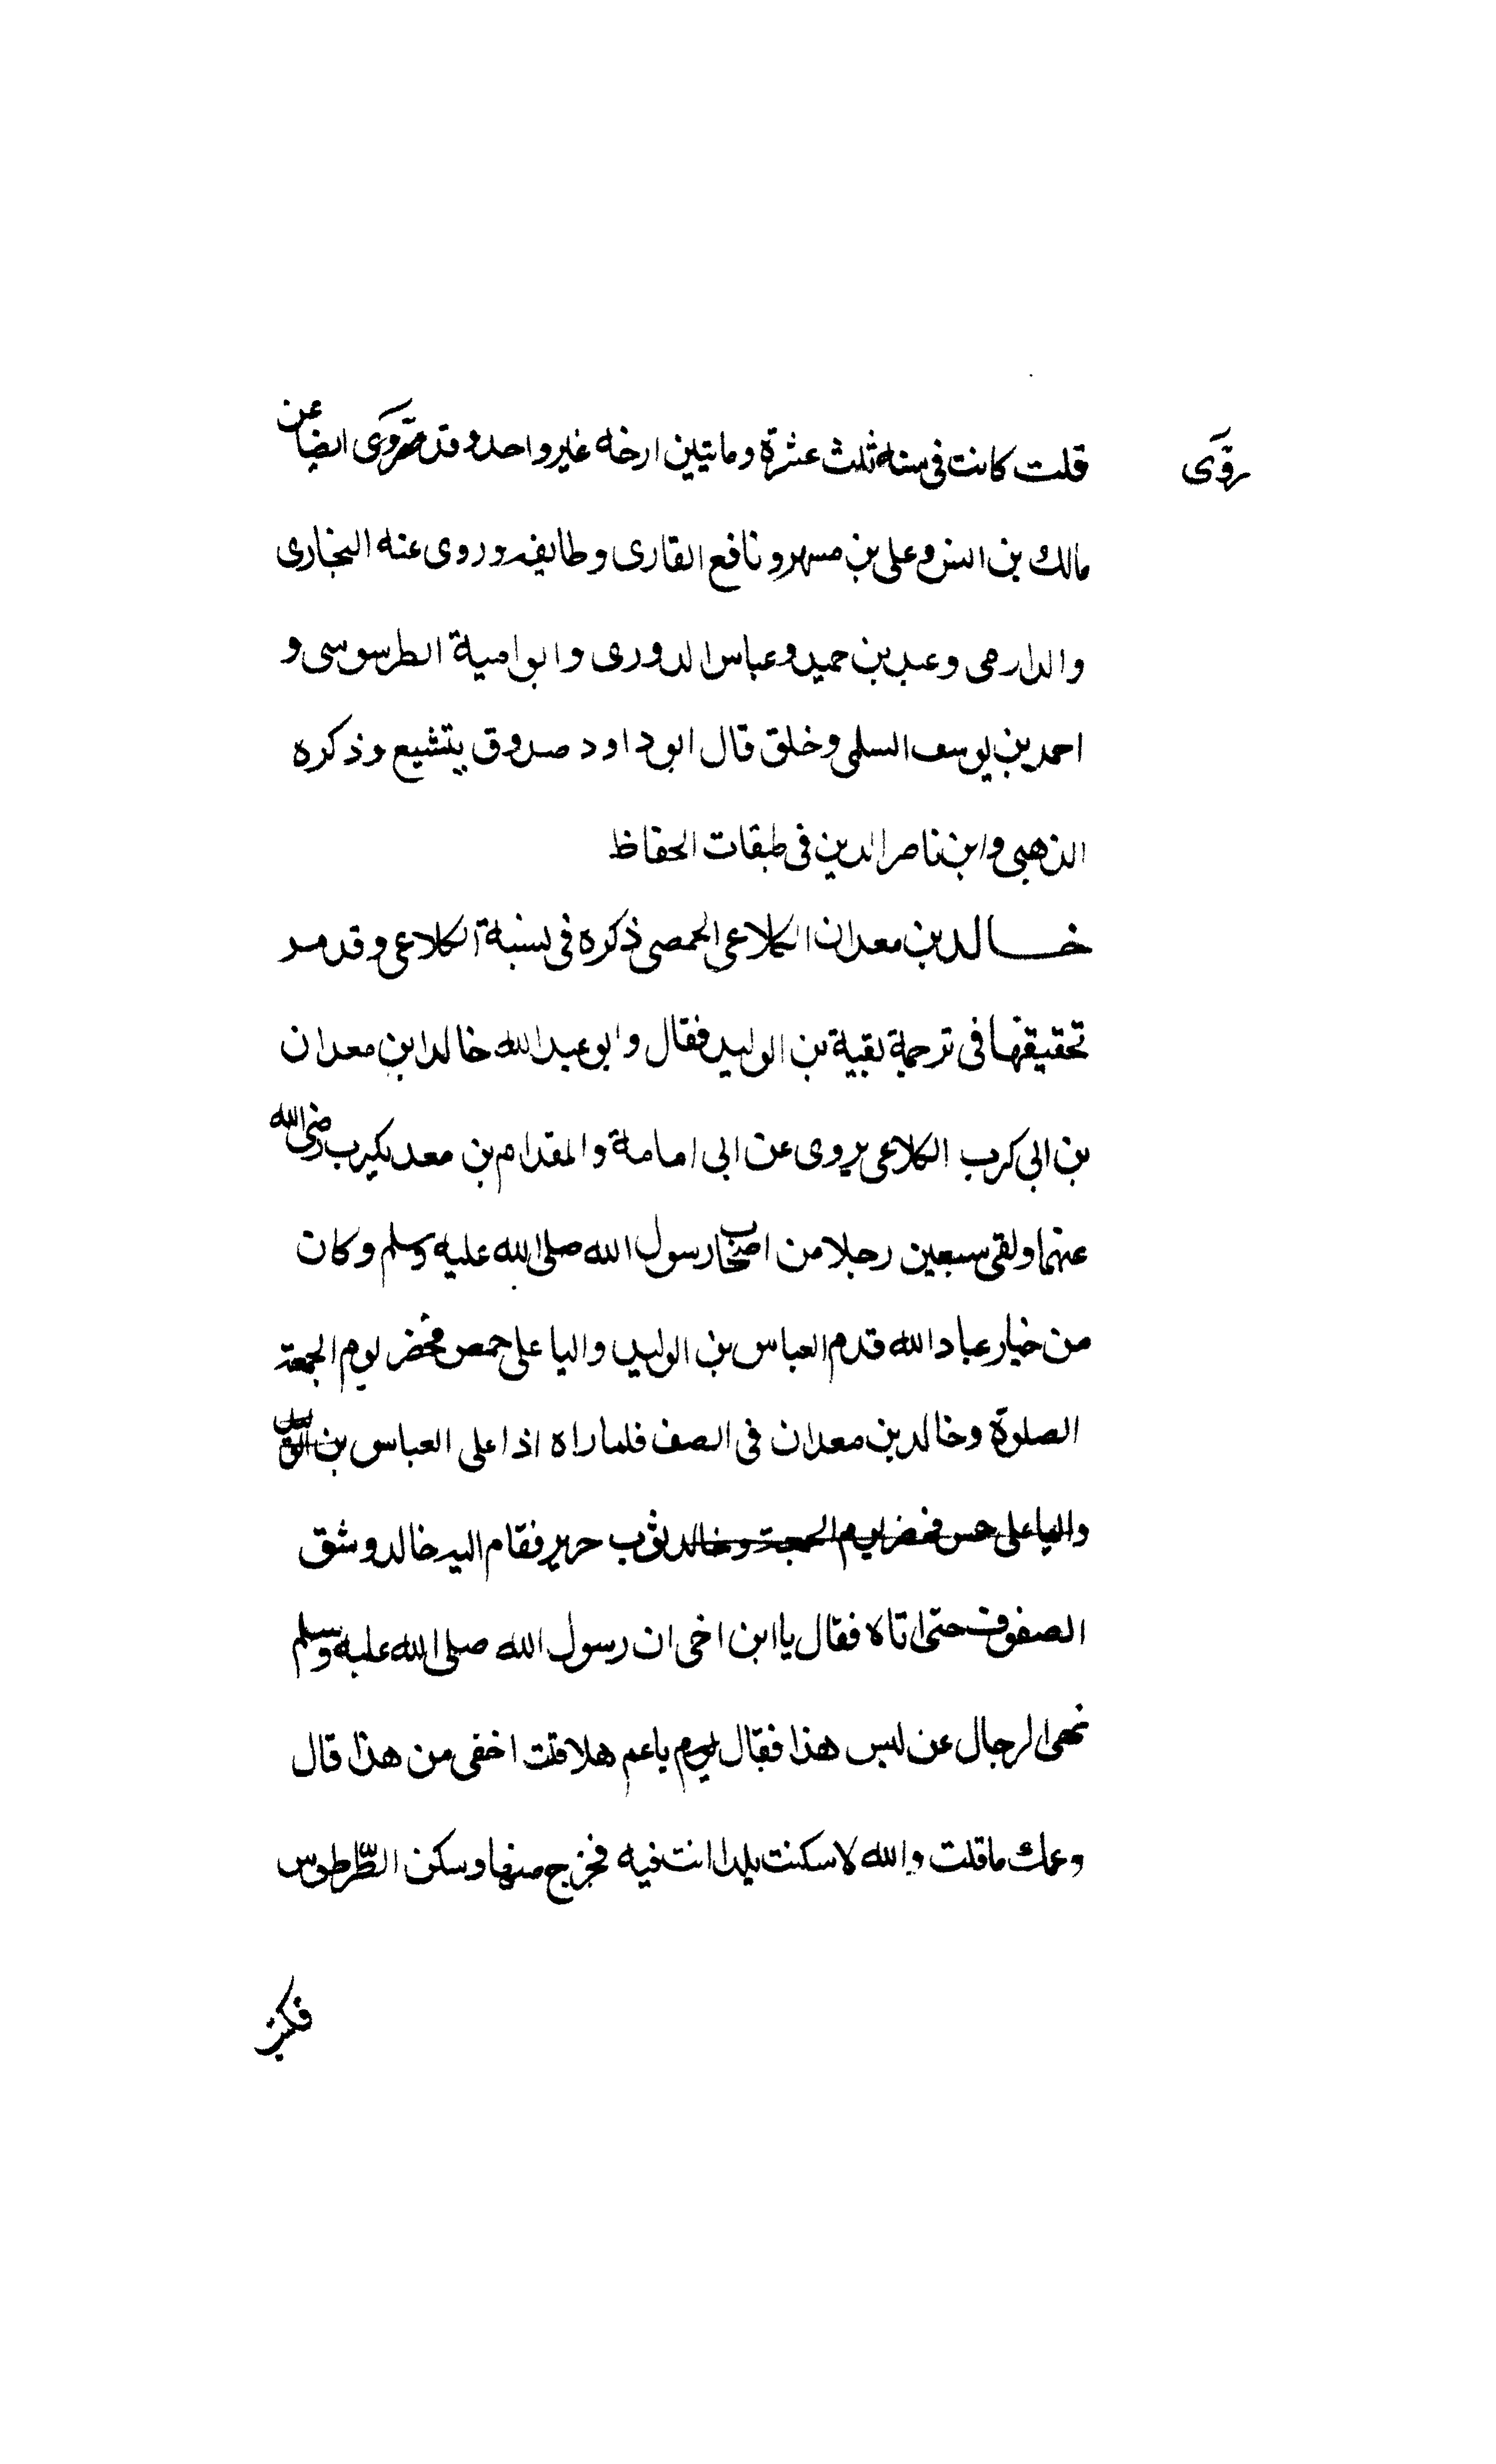 قلت كانت فى سنة ثلث عشرة وماتيلين ارخه غير واحد وقد روى ايضا عن
روى
مالك بن انس وعلى بن مسهر و نافع القارى وطايفه وروى عنه البخارى
والدارمى وعبد بن حميد وعباس الدورى وابو امية الطرسوسى و
احمد بن يوسف السلمى وخلق قال ابو داود صدوق يتشيع وذكره
الذهبى وابن ناصر الدين فى طبقات الحفاظ
خالد بن معدان الكلاعى الحمصى ذكره فى نسبة الكلاعى وقد مر
تحقيقها فى ترجمة بقية بن الوليد فقال وابو عبد الله خالد ابن معدان
بن ابى كرب الكلاعى يروى عن ابى امامة والمقدام بن معد يكرب رضى الله
عنهما ولقى سبعين رجلا من اصحاب رسول الله صلى الله عليه وسلم وكان
من خيار عباد الله قدم العباس بن الوليد واليا على حمص فحضر يوم الجمعة
الصلوة وخالد بن معدان فى الصف فلما راه اذا على العباس بن الوليد
واليا على حمس فحضر يوم الجمعة وخالد ثوب حرير فقام اليه خالد وشق
الصفوف حتى اتاه فقال يا ابن اخى ان رسول الله صلى الله عليه وسلم
نهى الرجال عن لبس هذا فقال يا عم هلا قلت اخفى من هذا قال
وعمك ما قلت والله لا سكنت بلدا انت فيه فخرج منها وسكن الطرطوس
فكتب